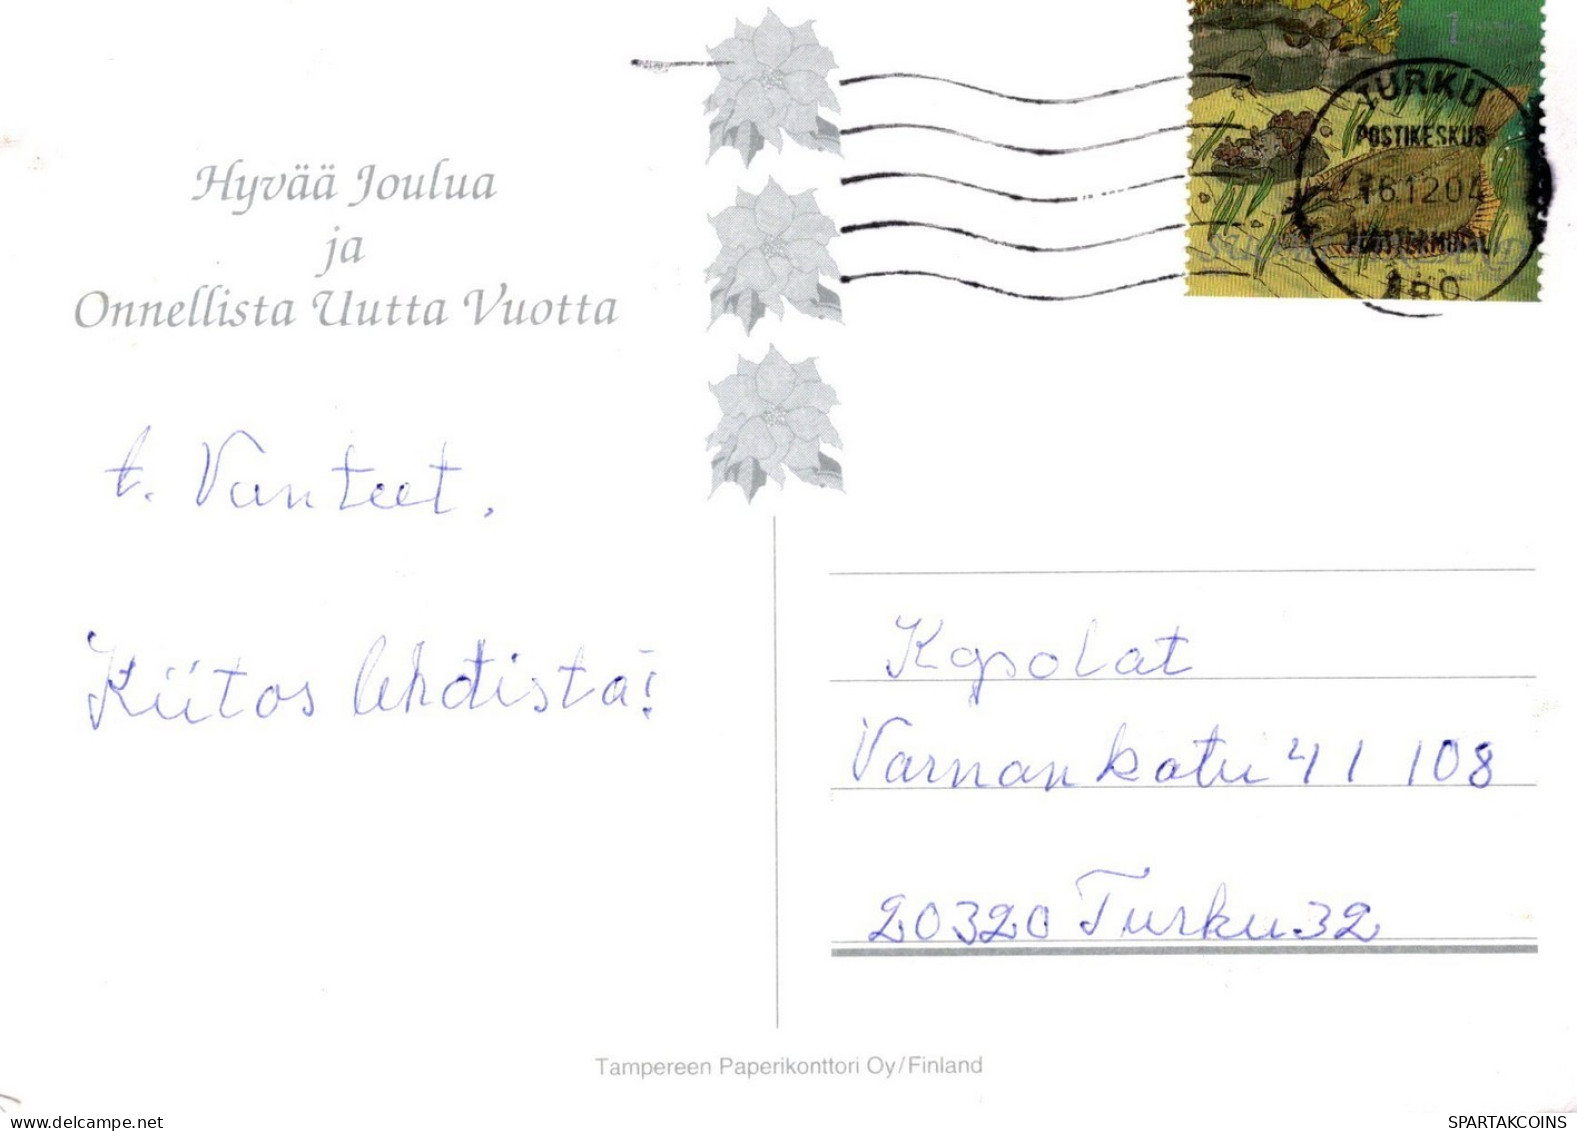 Hyvää Joulua
ja
Onnellista Uutta Vuotta
t. Vanteet.
Kiitos lehdistä!
1
TURKU
POSTIKESKUS
16.12.04
ÅBO
Varnankatu 41 108
20320 Turku 32
Tampereen Paperikonttori Oy/Finland
SPARTAKCOINS